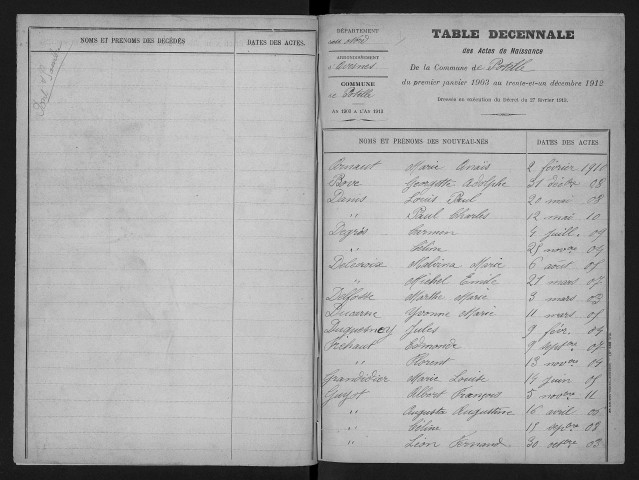 NOMS ET PRÉNOMS DES DÉCÉDÉS
DATES DES ACTES.
DÉPARTEMENT
ARRONDISSEMENT
d'Avesnes
COMMUNE
de Potelle
AN 1903 A L'AN 1912
TABLE DÉCENNALE
des Actes de Naissance
De la Commune de Potelle
du premier janvier 1903 au trente-et-un décembre 1912
Dressée en exécution du Décret du
NOMS ET PRÉNOMS DES NOUVEAU-NÉS
DATES DES ACTES
Marie Anaïs 2 février 1910
Bova Georgette Adolphe 31 décbre 08
Danis Louis Paul 20 mai 08
" Paul Charles 12 mai 10
Degros Germen 4 juill. 09
" 25 novbre 04
Delcroix Malvina Marie 6 août 05
" Michel Emile 21 mars 07
Delfosse Marthe Marie 3 mars 03
Ducarne Yvonne Marie 11 mars 05
Duquesnoy Jules 9 févr. 04
Fréhaut Edmonde 9 septbre 07
" Florent 13 novbre 09
Grandidier Marie Louise 14 juin 05
Guyot Albert François 5 novbre 11
" Auguste Augustine 16 avril
" Céline 15 septbre 08
" Léon Fernand 30 octbre 03